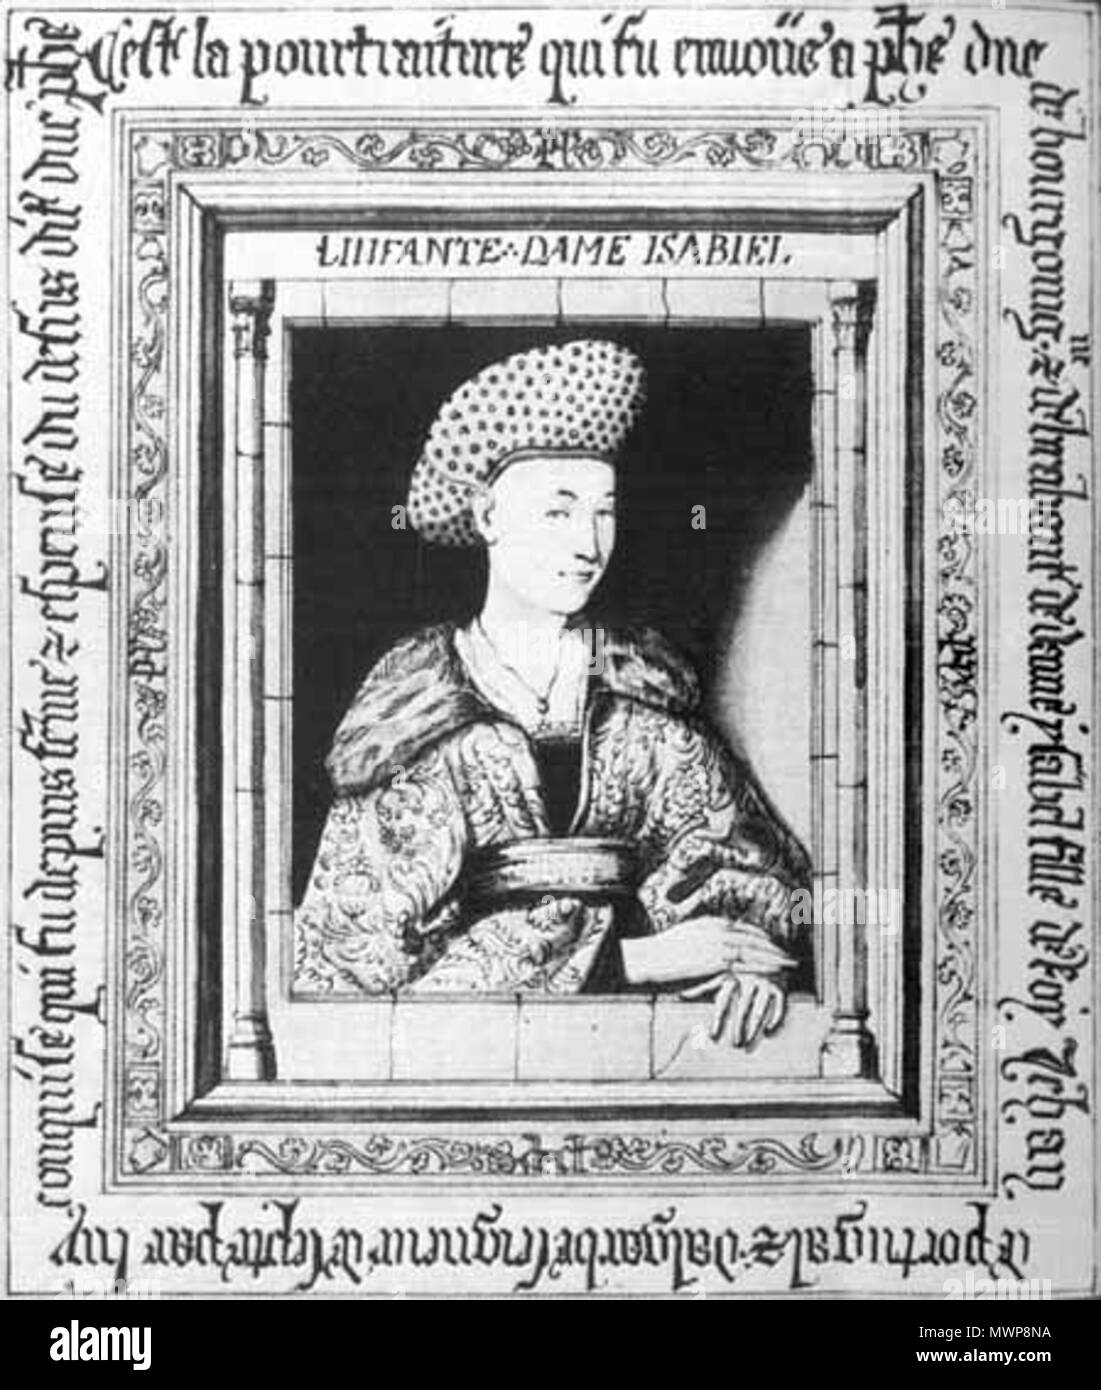 Cest la pourtraiture qui fu envoiie a phe duc
de bourgoingne & de brabant de dame ysabel fille de roy Jehan
de portugal & d'algarbe seigneur de septe par luy
conquise qui fu depuis feme & espeuse du desus dit duc phe
L'INFANTE DAME ISABIEL.
a alamy stock photo
Image ID: MWP8NA
www.alamy.com